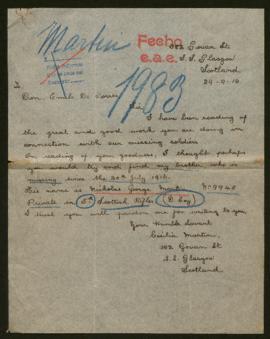 Martin
Fecho
c.a.e.
302 Govan St
S.S. Glasgow
Scotland
29-9-16
1983
Don. Emile De
Sir
I have been reading of
the great and good work you are doing in
connection with our missing soldiers.
On reading of your goodness, I thought perhaps
you would try and find my brother who is
missing since the 20th July 1916.
His name is Nicholas George Martin No 9948
Private in 5th Scottish Rifles (B Coy)
I trust you will pardon me for writing to you
Your Humble Servant
Cecilia Martin
302 Govan St
S.S. Glasgow
Scotland